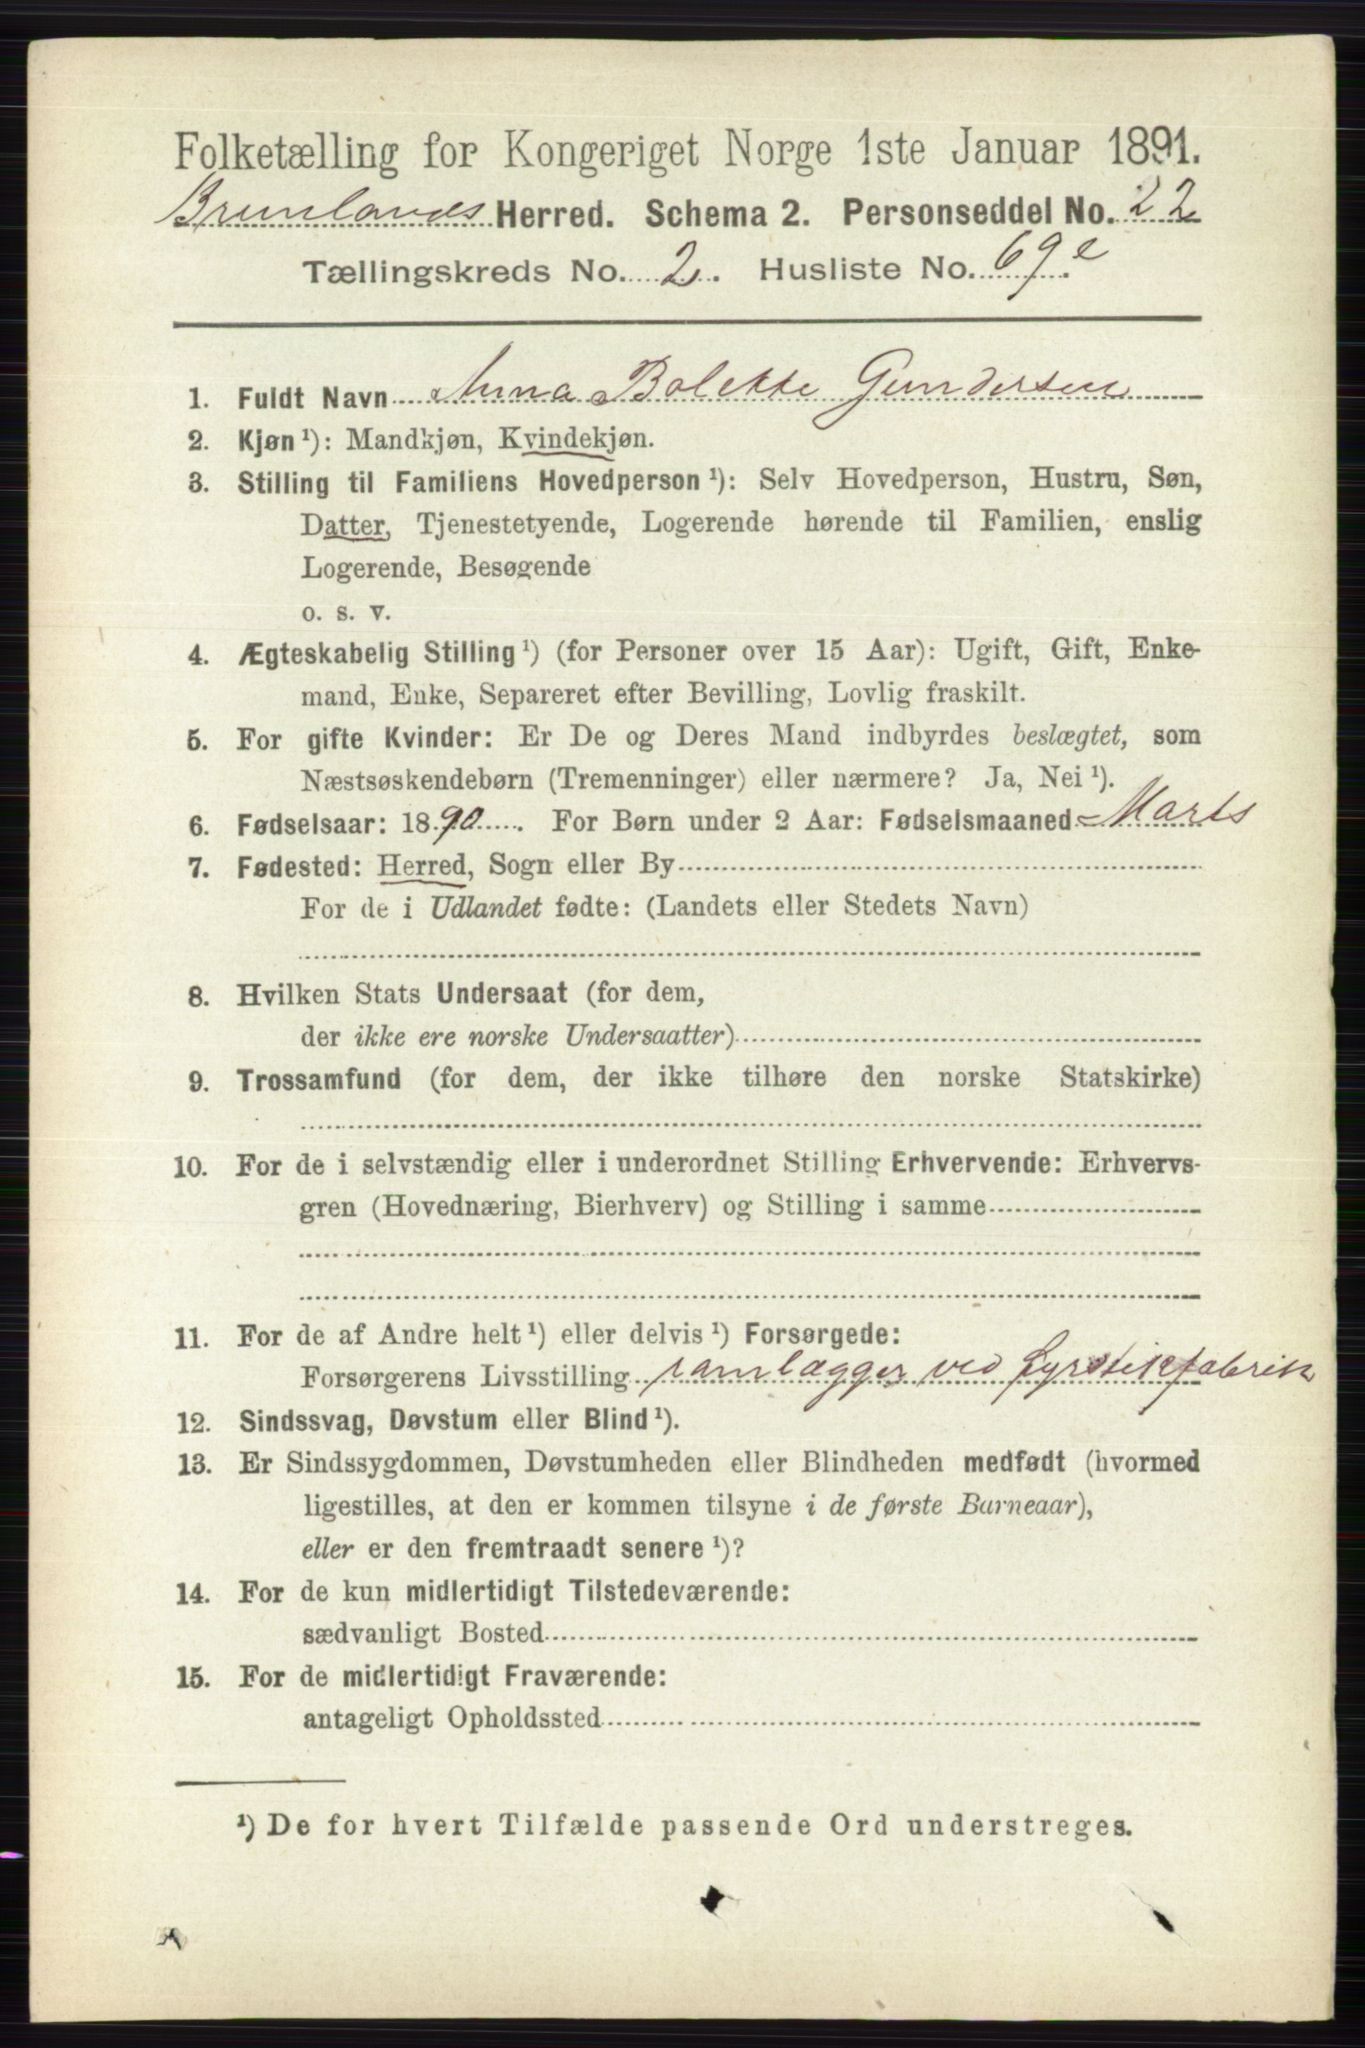 Folketælling for Kongeriget Norge 1ste Januar 1891.
Brunlanes Herred. Schema 2. Personseddel No. 22
Tællingskreds No. 2. Husliste No. 69e
1. Fuldt Navn Anna Bolette Gundersen
2. Kjøn ¹): Mandkjøn, Kvindekjøn.
3. Stilling til Familiens Hovedperson ¹): Selv Hovedperson, Hustru, Søn,
Datter, Tjenestetyende, Logerende hørende til Familien, enslig
Logerende, Besøgende
o. s. v.
4. Ægteskabelig Stilling ¹) (for Personer over 15 Aar): Ugift, Gift, Enke-
mand, Enke, Separeret efter Bevilling, Lovlig fraskilt.
5. For gifte Kvinder: Er De og Deres Mand indbyrdes beslægtet, som
Næstsøskendebørn (Tremenninger) eller nærmere? Ja, Nei ¹).
6. Fødselsaar: 1890. For Børn under 2 Aar: Fødselsmaaned Marts
7. Fødested: Herred, Sogn eller By
For de i Udlandet fødte: (Landets eller Stedets Navn)
8. Hvilken Stats Undersaat (for dem,
der ikke ere norske Undersaatter)
9. Trossamfund (for dem, der ikke tilhøre den norske Statskirke)
10. For de i selvstændig eller i underordnet Stilling Erhvervende: Erhvervs-
gren (Hovednæring, Bierhverv) og Stilling i samme
11. For de af Andre helt ¹) eller delvis ¹) Forsørgede:
Forsørgerens Livsstilling ramlægger ved Fyrstikfabrik
12. Sindssvag, Døvstum eller Blind ¹).
13. Er Sindssygdommen, Døvstumheden eller Blindheden medfødt (hvormed
ligestilles, at den er kommen tilsyne i de første Barneaar),
eller er den fremtraadt senere ¹)?
14. For de kun midlertidigt Tilstedeværende:
sædvanligt Bosted
15. For de midlertidigt Fraværende:
antageligt Opholdssted
¹) De for hvert Tilfælde passende Ord understreges.